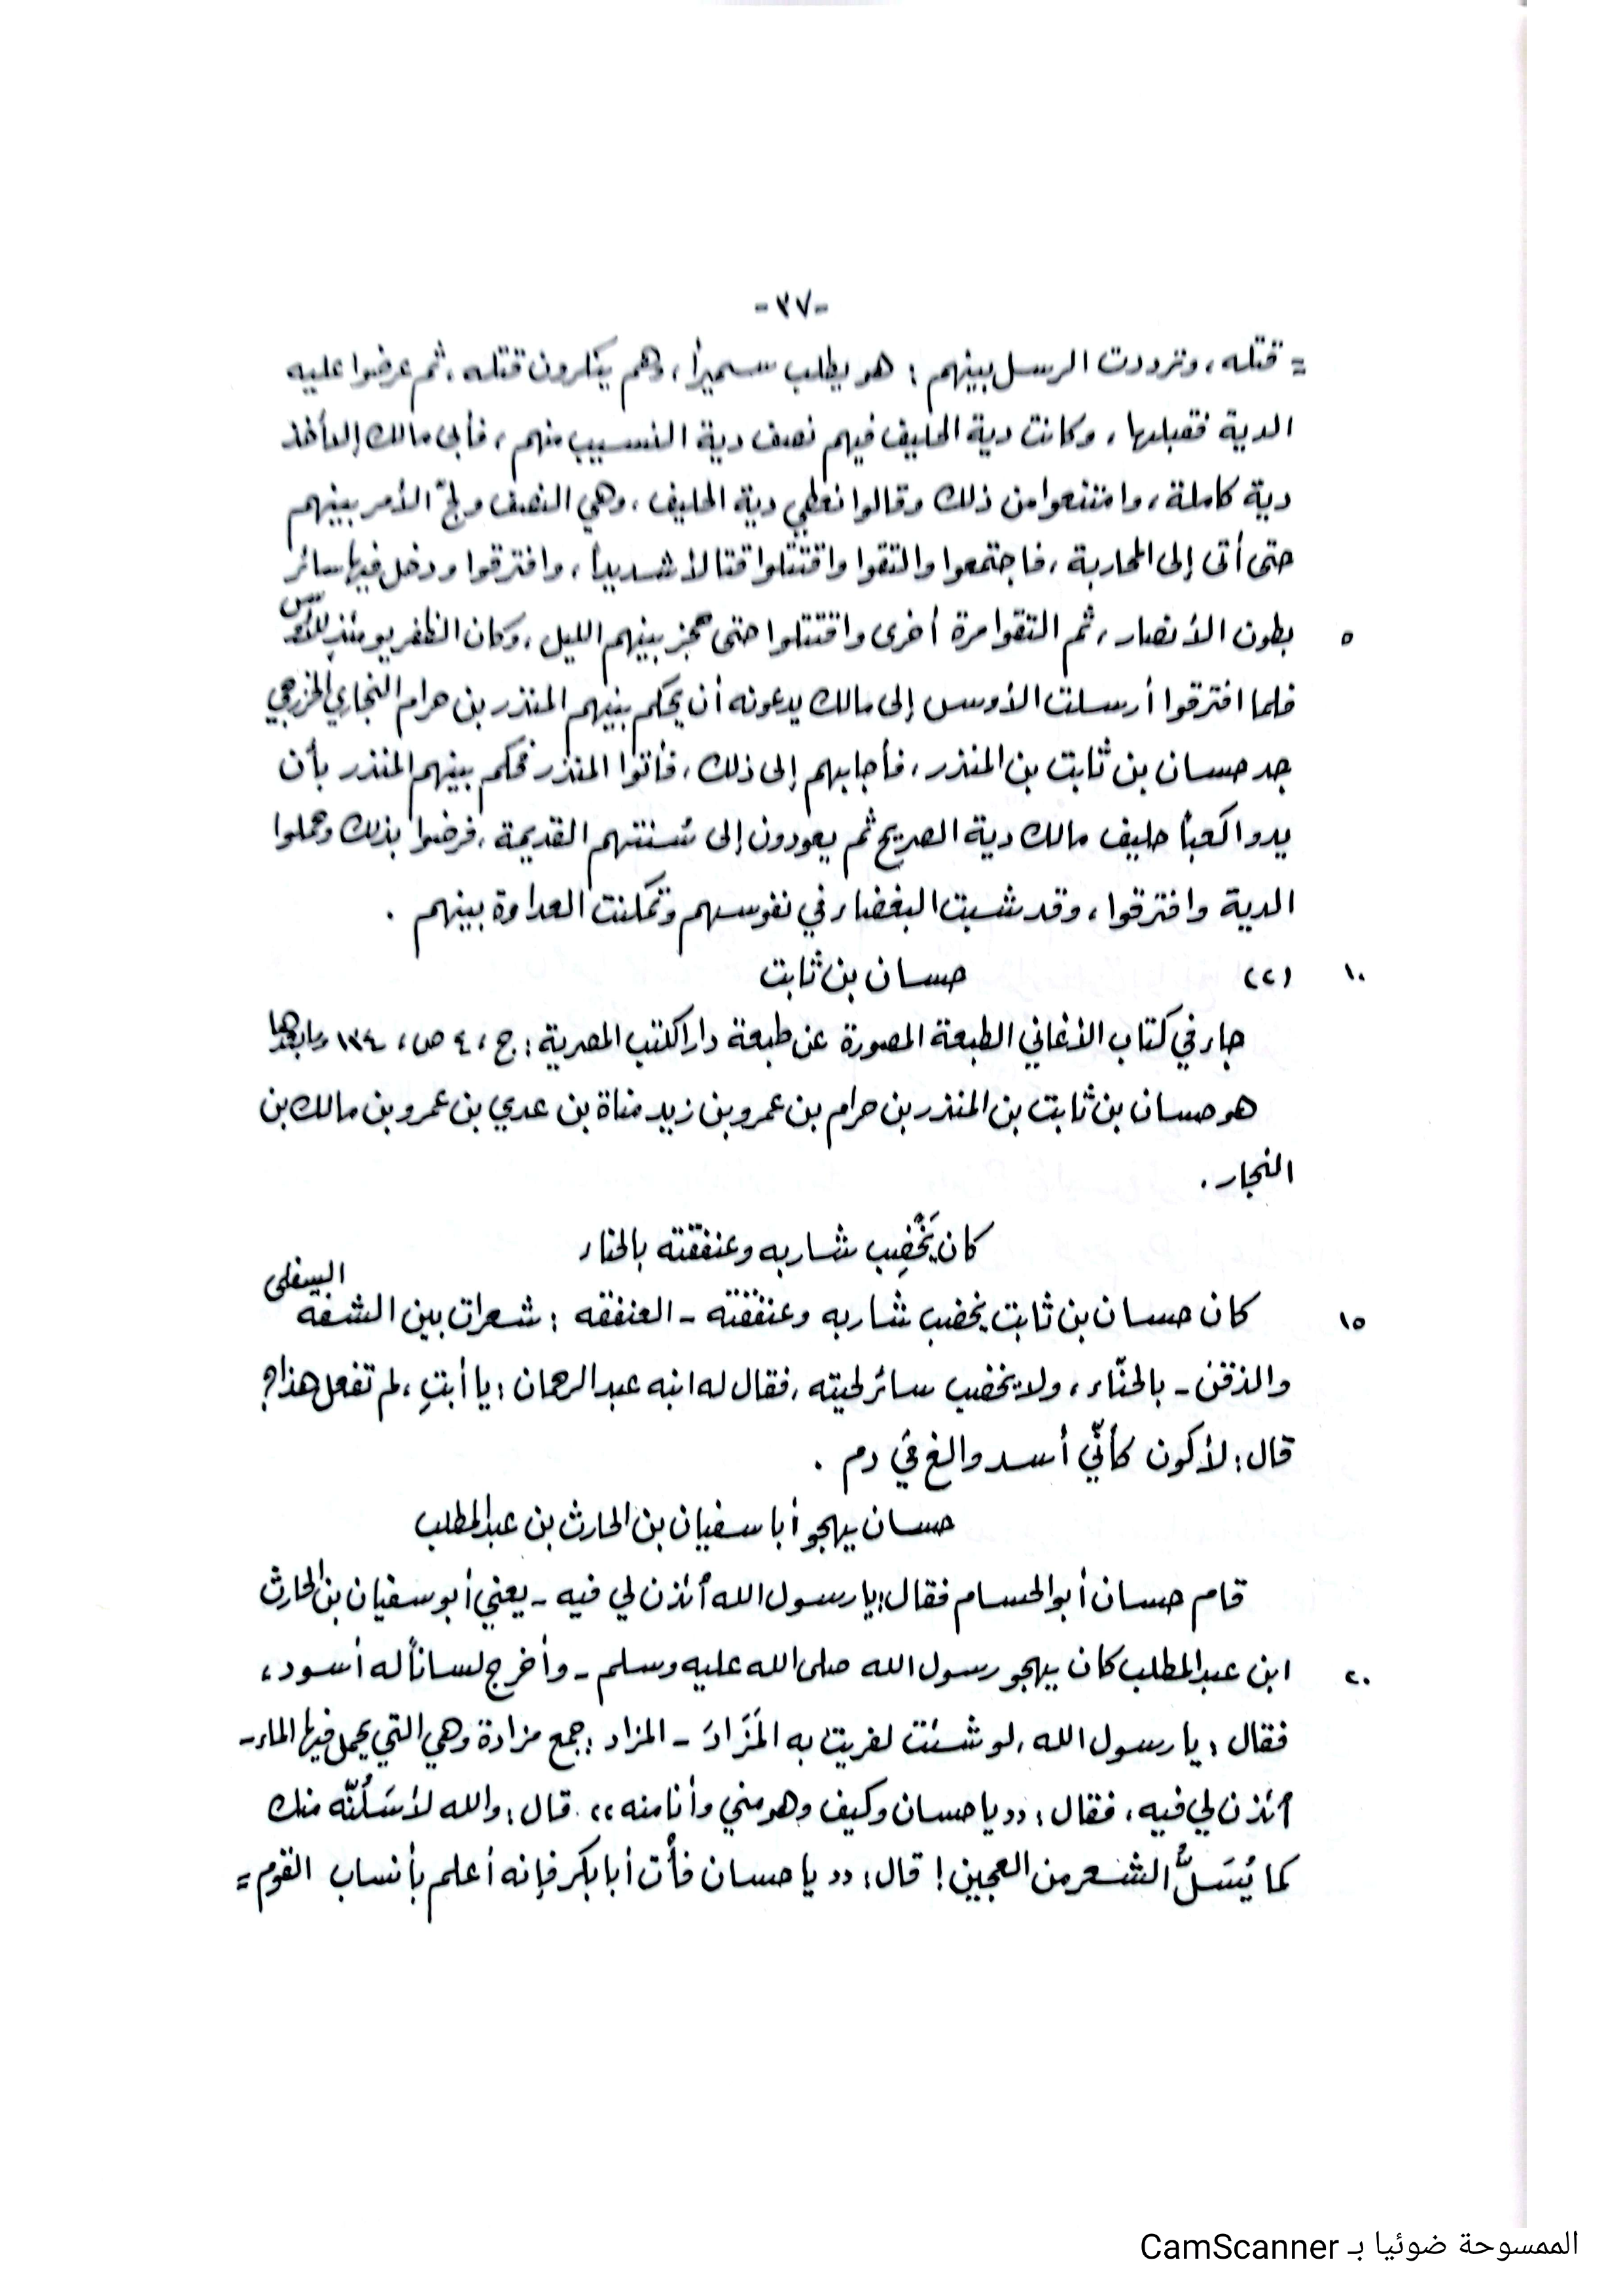 -٣٧-
= قتله، وترددت الرسل بينهم: هو يطلب سميرًا، وهم ينكرون قتله، ثم عرضوا عليه
الدية فقبلها، وكانت دية الحليف فيهم نصف دية النسيب منهم، فأبى مالك إلا أخذ
دية كاملة، وامتنعوا من ذلك وقالوا نعطي دية الحليف، وهي النصف ولجّ الأمر بينهم
حتى أتى إلى المحاربة، فاجتمعوا والتقوا واقتتلوا قتالاً شديداً، وافترقوا ودخل فيها سائر
٥ بطون الأنصار، ثم التقوا مرة أخرى واقتتلوا حتى حجز بينهم الليل، وكان الظفر يومئذٍ للأوس
فلما افترقوا أرسلت الأوس إلى مالك يدعونه أن يحكم بينهم المنذر بن حرام النجاري الخزرجي
جد حسان بن ثابت بن المنذر، فأجابهم إلى ذلك، فأتوا المنذر فحكم بينهم المنذر بأن
يدوا كعباً حليف مالك دية الصريح ثم يعودون إلى سُنتهم القديمة، فرضوا بذلك وحملوا
الدية وافترقوا، وقد شبت البغضاء في نفوسهم وتمكنت العداوة بينهم.
١٠ (٢) حسان بن ثابت
جاء في كتاب الأغاني الطبعة المصورة عن طبعة دار الكتب المصرية: ج، ٤ ص، ١٣٤ وما بعدها
هو حسان بن ثابت بن المنذر بن حرام بن عمرو بن زيد مناة بن عدي بن عمرو بن مالك بن
النجار.
كان يَخْضِب شاربه وعنفقته بالحناء
١٥ كان حسان بن ثابت يخضب شاربه وعنفقته - العنفقه: شعرات بين الشفة السفلى
والذقن - بالحنّاء، ولا يخضب سائر لحيته، فقال له ابنه عبد الرحمان: يا أبتِ، لم تفعل هذا؟
قال: لأكون كأنّي أسد والغ في دم.
حسان يهجو أبا سفيان بن الحارث بن عبد المطلب
قام حسان أبو الحسام فقال: يا رسول الله أئذن لي فيه - يعني أبو سفيان بن الحارث
٢٠ ابن عبد المطلب كان يهجو رسول الله صلى الله عليه وسلم - وأخرج لساناً له أسود،
فقال: يا رسول الله، لو شئت لفريت به المَزَادَ - المزاد: جمع مزادة وهي التي يحمل فيها الماء -
أئذن لي فيه، فقال: «يا حسان وكيف وهو مني وأنا منه». قال: والله لأسَلُنّه منك
كما يُسَلُّ الشعر من العجين! قال: «يا حسان فأْت أبا بكر فإنه أعلم بأنساب القوم =
الممسوحة ضوئيا بـ CamScanner